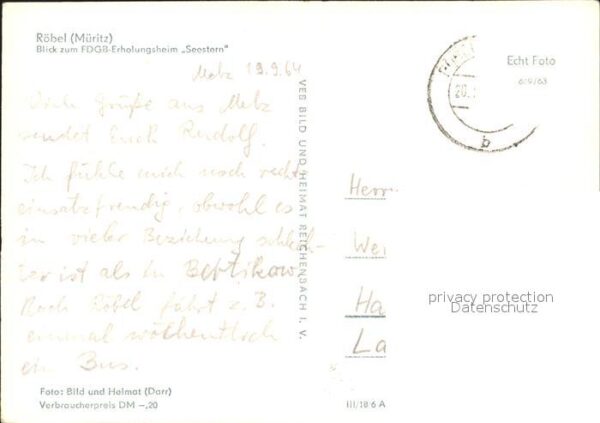 Röbel (Müritz)
Blick zum FDGB-Erholungsheim „Seestern"
Echt Foto
619/63
20.
b
Metz 19.9.64
Viele Grüße aus Metz
sendet Euch Rudolf.
Ich fühle mich noch recht
einsatzfreudig, obwohl es
in vieler Beziehung schlech-
ter ist als in Bertikow.
Nach Röbel fährt z. B.
einmal wöchentlich
ein Bus.
VEB BILD UND HEIMAT REICHENBACH I. V.
Herr
Wei
Ha
La
privacy protection
Datenschutz
Foto: Bild und Heimat (Darr)
Verbraucherpreis DM –,20
III/18/6 A